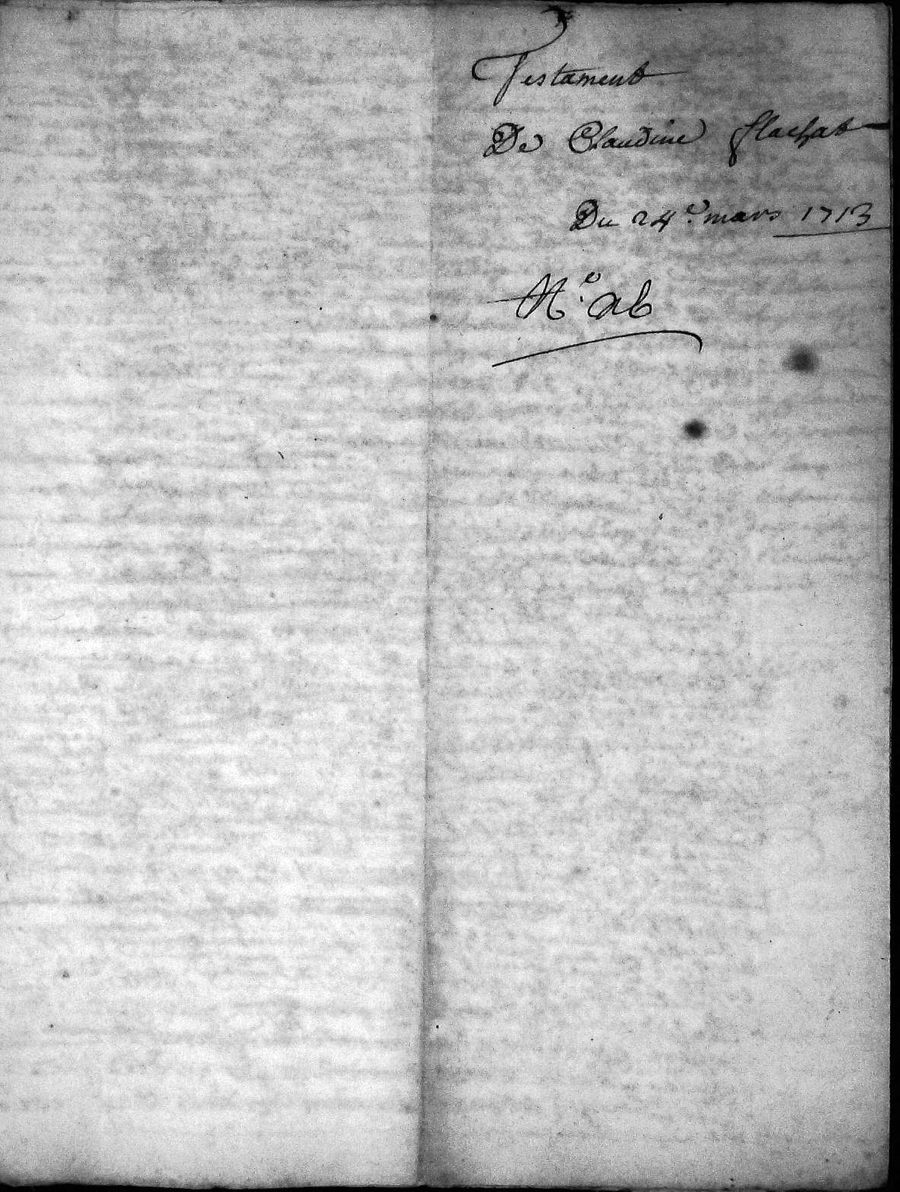 Testament
De Claudine flachat
Du 24e. mars 1713